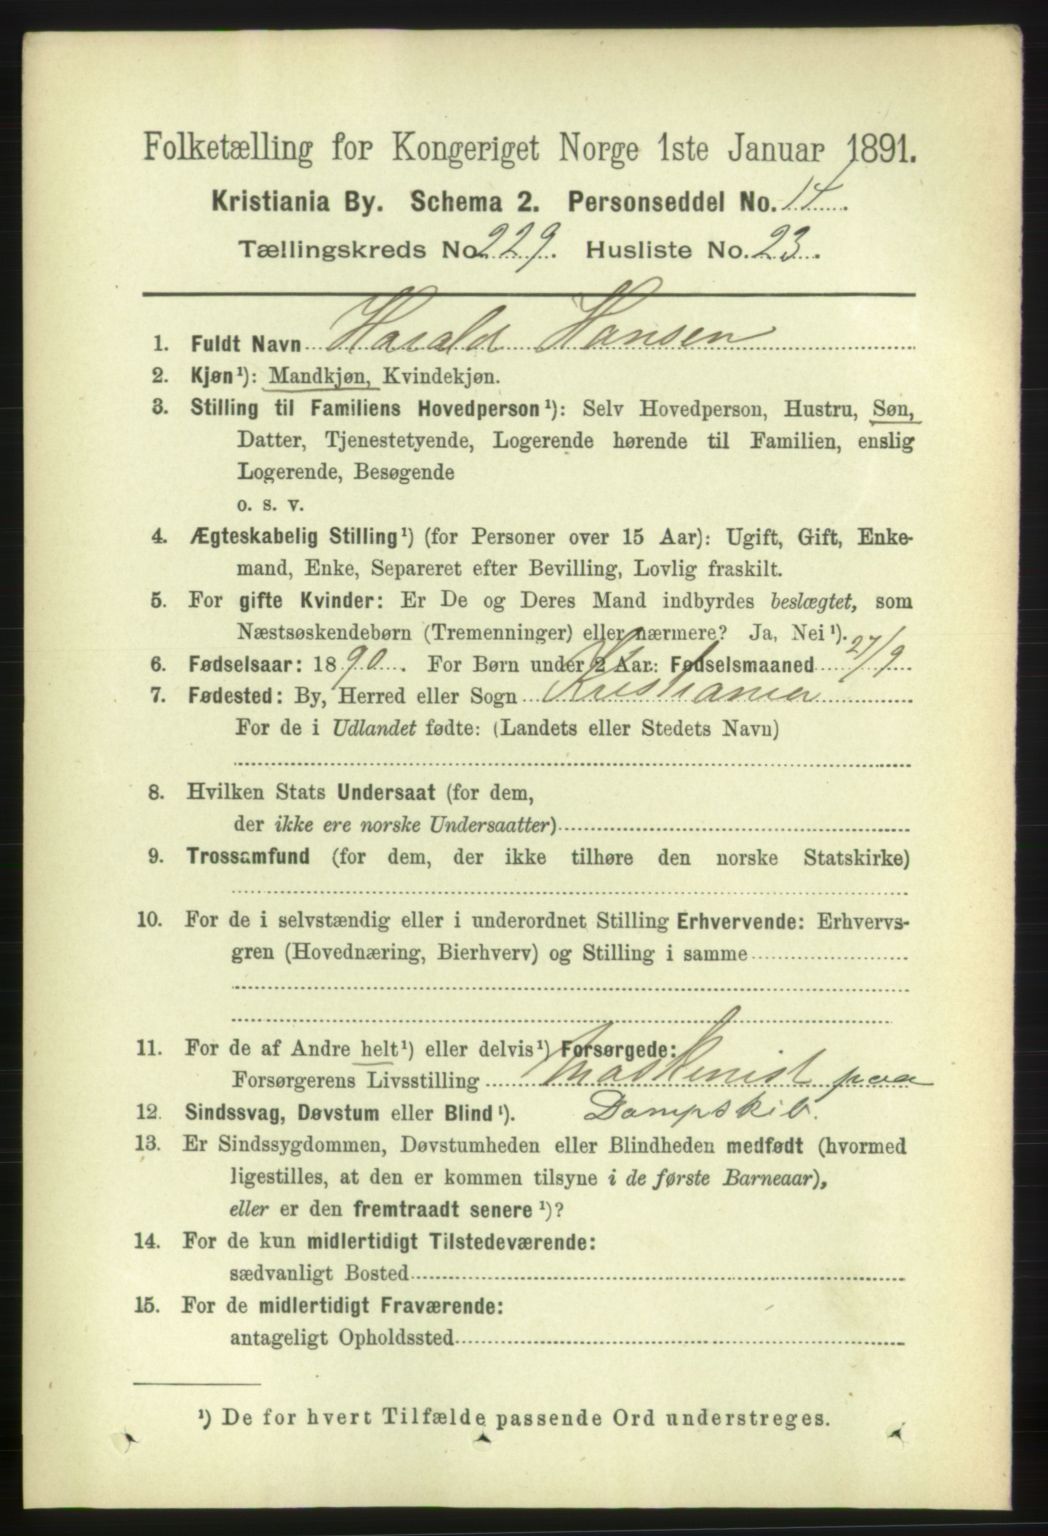 Folketælling for Kongeriget Norge 1ste Januar 1891.
Kristiania By. Schema 2. Personseddel No. 14
Tællingskreds No 229. Husliste No. 23.
1. Fuldt Navn Harald Hansen
2. Kjøn¹): Mandkjøn, Kvindekjøn.
3. Stilling til Familiens Hovedperson¹): Selv Hovedperson, Hustru, Søn,
Datter, Tjenestetyende, Logerende hørende til Familien, enslig
Logerende, Besøgende
o. s. v.
4. Ægteskabelig Stilling¹) (for Personer over 15 Aar): Ugift, Gift, Enke-
mand, Enke, Separeret efter Bevilling, Lovlig fraskilt.
5. For gifte Kvinder: Er De og Deres Mand indbyrdes beslægtet, som
Næstsøskendebørn (Tremenninger) eller nærmere? Ja, Nei¹).
6. Fødselsaar: 1890. For Børn under 2 Aar: Fødselsmaaned 27/9
7. Fødested: By, Herred eller Sogn Kristiania
For de i Udlandet fødte: (Landets eller Stedets Navn)
8. Hvilken Stats Undersaat (for dem,
der ikke ere norske Undersaatter)
9. Trossamfund (for dem, der ikke tilhøre den norske Statskirke)
10. For de i selvstændig eller i underordnet Stilling Erhvervende: Erhvervs-
gren (Hovednæring, Bierhverv) og Stilling i samme
11. For de af Andre helt¹) eller delvis¹) Forsørgede:
Forsørgerens Livsstilling Maskinist paa
12. Sindssvag, Døvstum eller Blind¹). Dampskib.
13. Er Sindssygdommen, Døvstumheden eller Blindheden medfødt (hvormed
ligestilles, at den er kommen tilsyne i de første Barneaar),
eller er den fremtraadt senere¹)?
14. For de kun midlertidigt Tilstedeværende:
sædvanligt Bosted
15. For de midlertidigt Fraværende:
antageligt Opholdssted
¹) De for hvert Tilfælde passende Ord understreges.